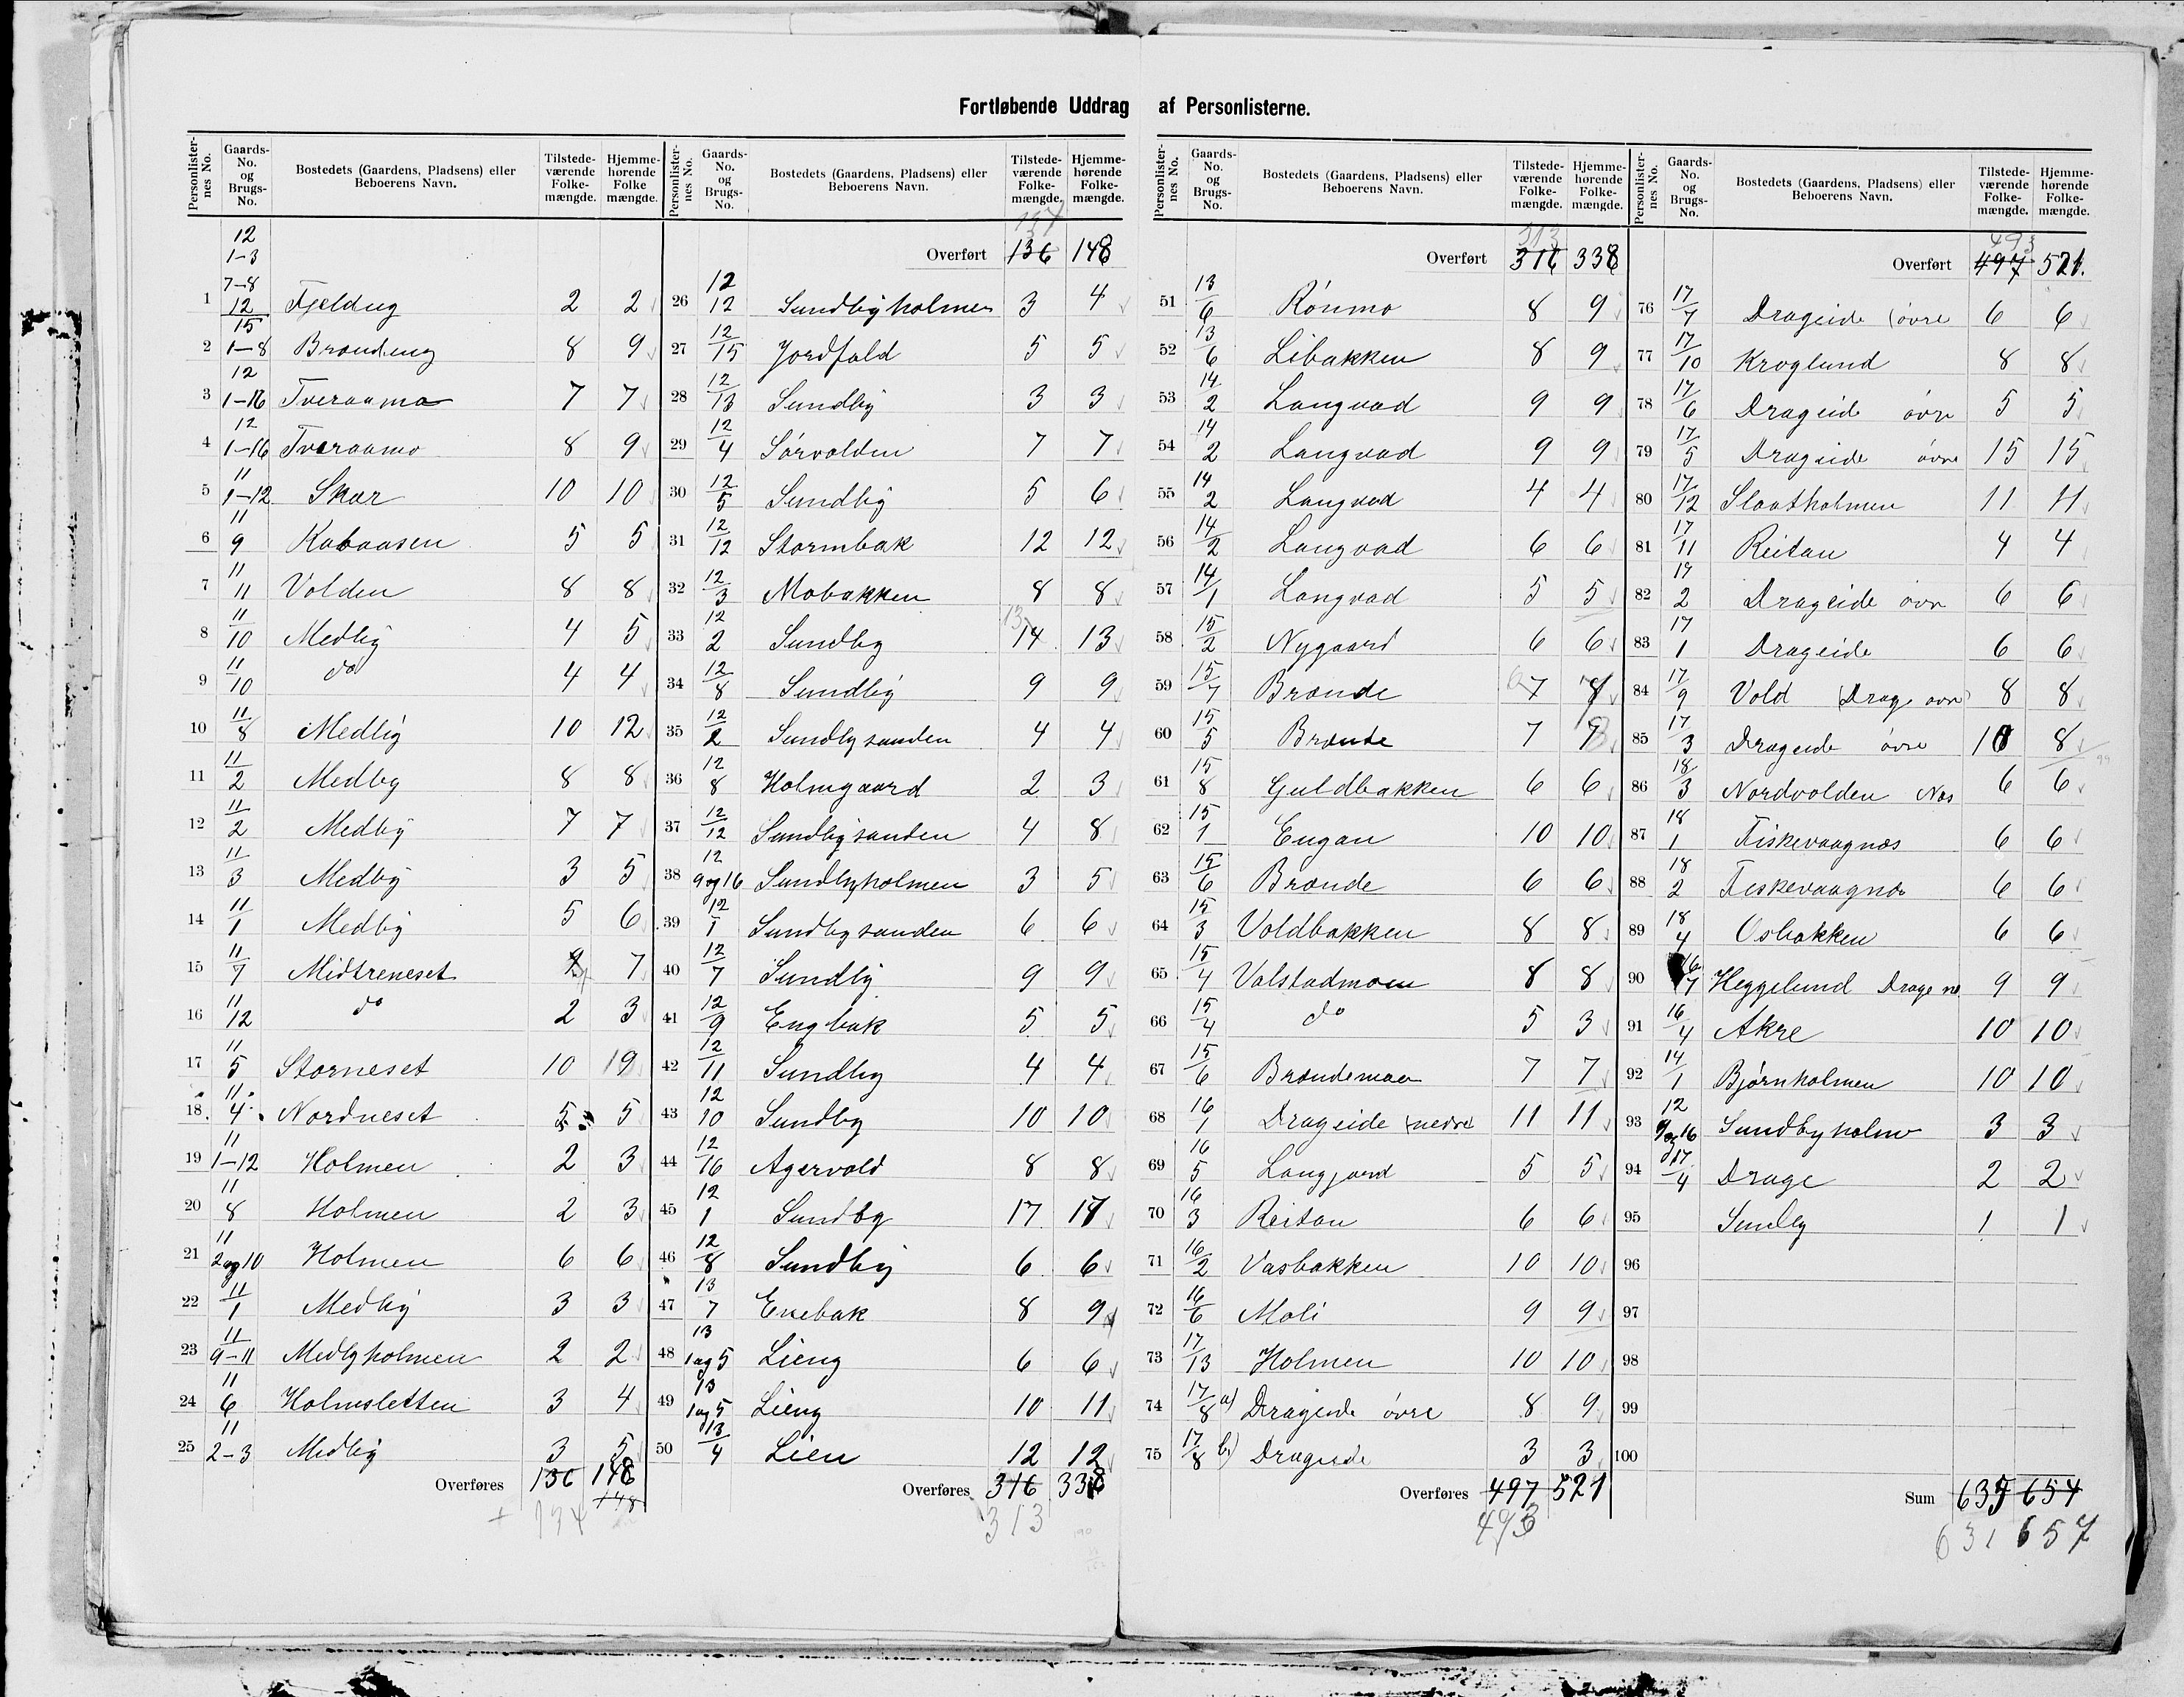 Fortløbende Uddrag af Personlisterne.
Personlister-nes No. Gaards-No. og Brugs-No. Bostedets (Gaardens, Pladsens) eller Beboerens Navn. Tilstede-værende Folke-mængde. Hjemme-hørende Folke mængde.
12
1-3
7-8
1 12/15 Fjeldeng 2 2
2 1-8 Brændeng 8 9
3 12 1-16 Tveraamo 7 7
4 12 1-16 Tveraamo 8 9
5 11 1-12 Skar 10 10
6 11 9 Kabaasen 5 5
7 11 11 Volden 8 8
8 11/10 Medby 4 5
9 11/10 do 4 4
10 11/8 Medby 10 12
11 11/2 Medby 8 8
12 11/2 Medby 7 7
13 11/3 Medby 3 5
14 11/1 Medby 5 6
15 11/7 Midtreneset 7
16 11/12 do 2 3
17 11 5 Storneset 10 19
18 11 4 Nordneset 5 5
19 11 1-12 Holmen 2 3
20 11 8 Holmen 2 3
21 11 2 og 10 Holmen 6 6
22 11/1 Medby 3 3
23 11 9-11 Medbyholmen 2 2
24 11 6 Holmsletten 3 4
25 11 2-3 Medby 3 5
Overføres 136 148
148
134
Personlister-nes No. Gaards-No. og Brugs-No. Bostedets (Gaardens, Pladsens) eller Beboerens Navn. Tilstede-værende Folke-mængde. Hjemme-hørende Folke-mængde.
134
Overført 136 148
26 12 12 Sundbyholmen 3 4
27 12/15 Jordfald 5 5
28 12/13 Sundby 3 3
29 12/4 Sørvolden 7 7
30 12/5 Sundby 5 6
31 12/12 Stormbak 12 12
32 12/3 Mobakken 8 8
33 12 2 Sundby 13 14 13
34 12/8 Sundby 9 9
35 12/2 Sundbysanden 4 4
36 12 8 Holmgaard 2 3
37 12/12 Sundbysanden 4 8
38 12 9 og 16 Sundbyholmen 3 5
39 12 1 Sundbysanden 6 6
40 12/7 Sundby 9 9
41 12/9 Engbak 5 5
42 12/11 Sundby 4 4
43 12 10 Sundby 10 10
44 12/16 Agervold 8 8
45 12 1 Sundby 17 17
46 12/8 Sundby 6 6
47 13 7 Enebak 8 9
48 13 1 og 5 Lieng 6 6
49 13 1 og 5 Lieng 10 11
50 13/4 Lien 12 12
Overføres 316 338
313
Personlister-nes No. Gaards-No. og Brugs-No. Bostedets (Gaardens, Pladsens) eller Beboerens Navn. Tilstede-værende Folke-mængde. Hjemme-hørende Folke-mængde.
313
Overført 316 338
51 13/6 Rönmo 8 9
52 13/6 Libakken 8 9
53 14/2 Langvad 9 9
54 14 2 Langvad 9 9
55 14 2 Langvad 4 4
56 14/2 Langvad 6 6
57 14/1 Langvad 5 5
58 15/2 Nygaard 6 6
59 15/7 Brænde 7
60 15 5 Brænde 7
61 15 8 Guldbakken 6 6
62 15 1 Engan 10 10
63 15/6 Brænde 6 6
64 15/3 Voldbakken 8 8
65 15/4 Valstadmoen 8 8
66 15/4 do 5 3
67 15/6 Brændemoen 7 7
68 16/1 Drageide (nedre) 11 11
69 16 5 Langjord 5 5
70 16 3 Reitan 6 6
71 16/2 Vasbakken 10 10
72 16/6 Moli 9 9
73 17/13 Holmen 10 10
74 17/8 a) Drageide övre 8 9
75 17/8 b) Drageide 3 3
Overføres 497 521
493
Personlister-nes No. Gaards-No. og Brugs-No. Bostedets (Gaardens, Pladsens) eller Beboerens Navn. Tilstede-værende Folke-mængde. Hjemme-hørende Folke-mængde.
493
Overført 497 521.
76 17/7 Drageide (övre 6 6
77 17/10 Kroglund 8 8
78 17/6 Drageide övre 5 5
79 17/5 Drageide övre 15 15
80 17/12 Slaatholmen 11 11
81 17/11 Reitan 4 4
82 17 2 Drageide övre 6 6
83 17 1 Drageide 6 6
84 17/9 Vold (Drag övre) 8 8
85 17/3 Drageide övre 8
86 18/3 Nordvolden Nos 6 6
87 18 1 Fiskevaagnæs 6 6
88 18 2 Fiskevaagnæs 6 6
89 18/4 Osbakken 6 6
90 16/7 Heggelund Drage ne 9 9
91 16/4 Akre 10 10
92 14/1 Bjørnholmen 10 10
93 12 9 og 16 Sundbyholm 3 3
94 17/4 Drage 2 2
95 Sundby 1 1
96
97
98
99
100
Sum 635 654
631 657